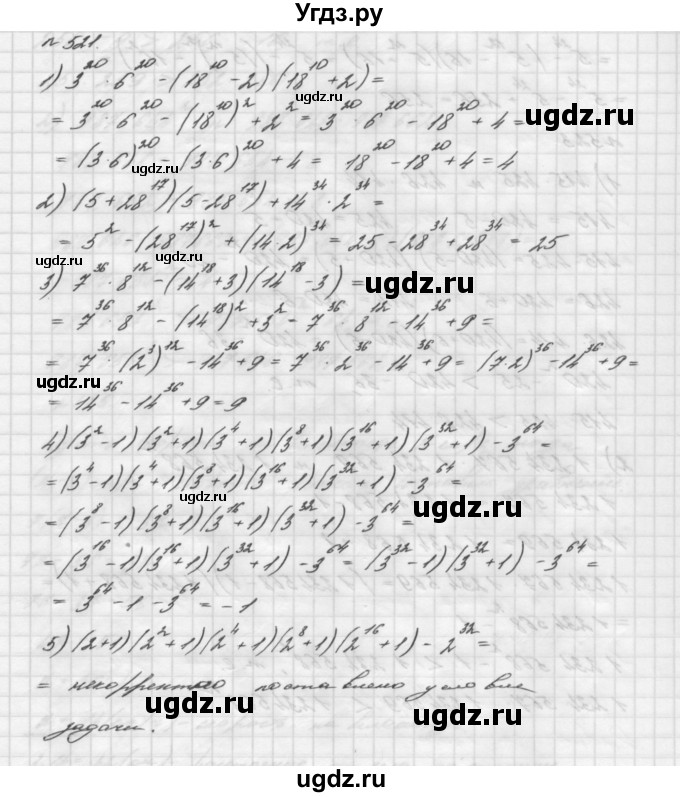 Угдз.ру
№521.
1) 3²⁰ · 6²⁰ - (18¹⁰ - 2)(18¹⁰ + 2) =
= 3²⁰ · 6²⁰ - (18¹⁰)² + 2² = 3²⁰ · 6²⁰ - 18²⁰ + 4 =
ugdz.ru
ugdz.ru
= (3·6)²⁰ - (3·6)²⁰ + 4 = 18²⁰ - 18²⁰ + 4 = 4
2) (5 + 28¹⁷)(5 - 28¹⁷) + 14³⁴ · 2³⁴ =
= 5² - (28¹⁷)² + (14·2)³⁴ = 25 - 28³⁴ + 28³⁴ = 25
ugdz.ru
3) 7³⁶ · 8¹² - (14¹⁸ + 3)(14¹⁸ - 3) =
ugdz.ru
= 7³⁶ · 8¹² - (14¹⁸)² + 3² - 7³⁶ · 8¹² - 14³⁶ + 9 =
= 7³⁶ · (2³)¹² - 14³⁶ + 9 = 7³⁶ · 2³⁶ - 14³⁶ + 9 = (7·2)³⁶ - 14³⁶ + 9 =
ugdz.ru
= 14³⁶ - 14³⁶ + 9 = 9
4) (3² - 1)(3² + 1)(3⁴ + 1)(3⁸ + 1)(3¹⁶ + 1)(3³² + 1) - 3⁶⁴ =
= (3⁴ - 1)(3⁴ + 1)(3⁸ + 1)(3¹⁶ + 1)(3³² + 1) - 3⁶⁴ =
ugdz.ru
ugdz.ru
= (3⁸ - 1)(3⁸ + 1)(3¹⁶ + 1)(3³² + 1) - 3⁶⁴ =
= (3¹⁶ - 1)(3¹⁶ + 1)(3³² + 1) - 3⁶⁴ = (3³² - 1)(3³² + 1) - 3⁶⁴ =
= 3⁶⁴ - 1 - 3⁶⁴ = -1
5) (2 + 1)(2² + 1)(2⁴ + 1)(2⁸ + 1)(2¹⁶ + 1) - 2³² =
= некорректно поставлено условие
ugdz.ru
ugdz.ru
задачи.
ugdz.ru